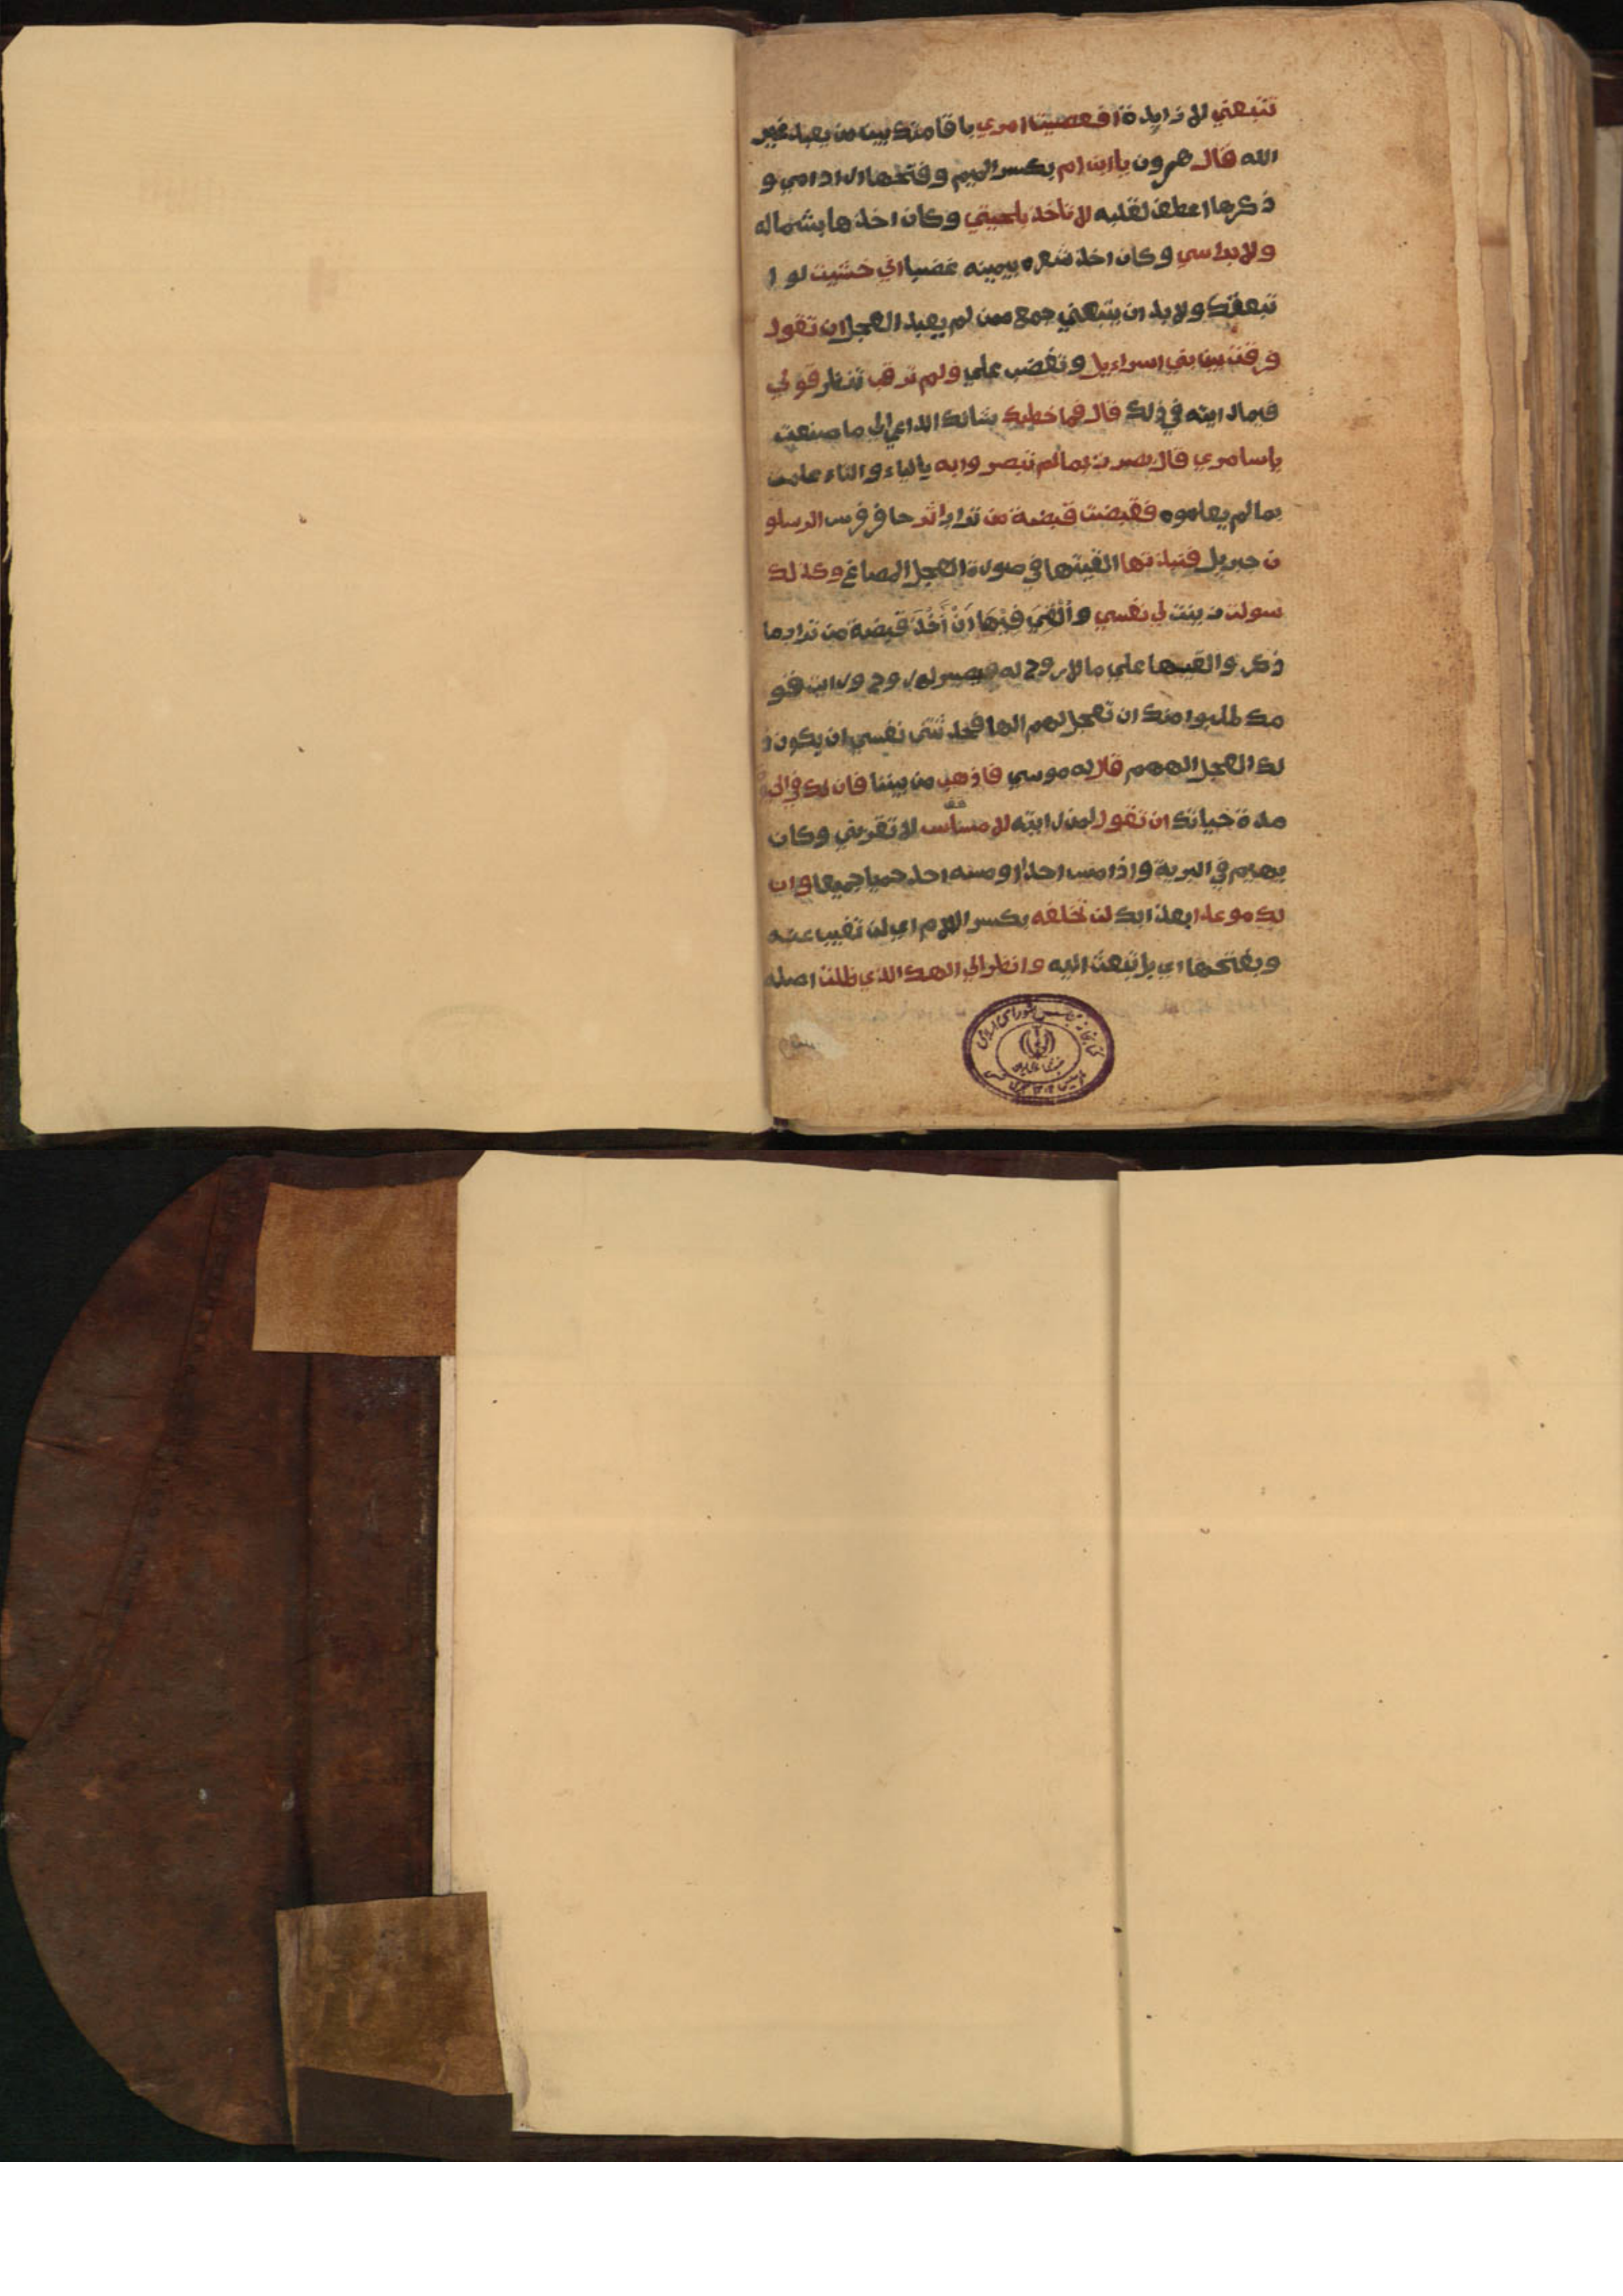 تتبعني لا زايدة افعصيت امري باقامتك بين من يعبد غير
الله قال هرون يا ابن ام بكسر الميم وفتحها اراد امي و
ذكرها اعطف لقلبه لا تاخذ بلحيتي وكان اخذها بشماله
ولا براسي وكان اخذ شعره بيمينه غضبا اني خشيت لو ا
تبعتك ولا بد ان يتبعني جمع ممن لم يعبد العجل ان تقول
فرقت بين بني اسراءيل وتغضب علي ولم ترقب تنظر قولي
فيما رايته في ذلك قال فما خطبك شانك الداعي الى ما صنعت
ياسامري قال بصرت بما لم تبصروا به بالياء والتاء علمت
بما لم يعلموه فقبضت قبضة من تراب اثر حافر فرس الرسول
ن جبريل فنبذتها القيتها في صورة العجل المصاغ وكذلك
سولت زينت لي نفسي وَأُلْقِيَ فِيْهَا اَنْ أَخُذَ قبضة من تراب ما
ذكر والقيها على ما لا روح له فيصير له روح ورايت قو
مك طلبوا منك ان تجعل لهم الها فحدثتني نفسي ان يكون ذ
لك العجل الههم قال له موسي فاذهب من بيننا فان لك في الحيوة
مدة حياتك ان تقول لمن رايته لا مساس لا تقربني وكان
يهيم في البرية واذا مس احدا او مسه احد حميا جميعا وان
لك موعدا بعذابك لن تخلفه بكسر اللام اي لن تغيب عنه
وبفتحها اي بل تبعث اليه وانظر الى الهك الذي ظلت اصله
كتابخانه مجلس شورای اسلامی